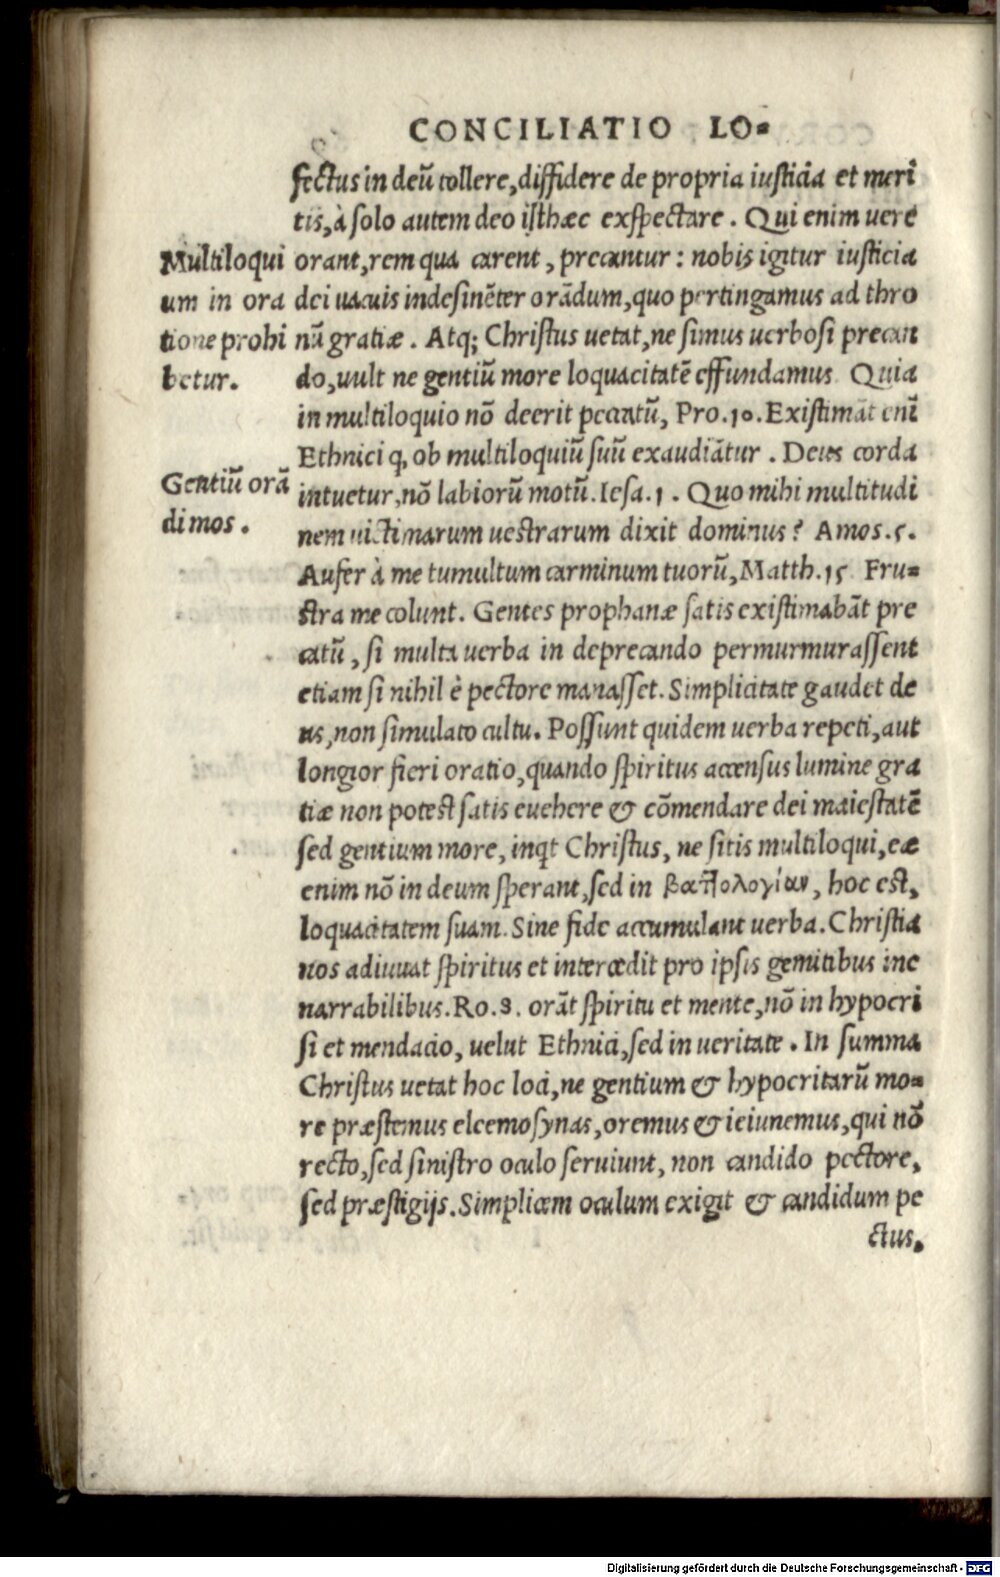 CONCILIATIO LO=
fectus in deū tollere, diffidere de propria iusticia et meri
tis, à solo autem deo isthæc exspectare. Qui enim uere
Multiloqui
um in ora
tione prohi
betur.
orant, rem qua carent, precantur: nobis igitur iusticia
dei uacuis indesinēter orādum, quo pertingamus ad thro
nū gratiæ. Atq; Christus uetat, ne simus uerbosi precan
do, uult ne gentiū more loquacitatē effundamus Quia
in multiloquio nō deerit peccatū, Pro.10. Existimāt enī
Ethnici q, ob multiloquiū suū exaudiātur. Deus corda
Gentiū orā
di mos.
intuetur, nō labiorū motū. Iesa.1. Quo mihi multitudi
nem uictimarum uestrarum dixit dominus? Amos.5.
Aufer à me tumultum carminum tuorū, Matth.15 Fru=
stra me colunt. Gentes prophanæ satis existimabāt pre
catū, si multa uerba in deprecando permurmurassent
etiam si nihil è pectore manasset. Simplicitate gaudet de
us, non simulato cultu. Possunt quidem uerba repeti, aut
longior fieri oratio, quando spiritus accensus lumine gra
tiæ non potest satis euehere & cōmendare dei maiestatē
sed gentium more, inqt Christus, ne sitis multiloqui, eæ
enim nō in deum sperant, sed in βαττολογίαν, hoc est,
loquacitatem suam. Sine fide accumulant uerba. Christia
nos adiuuat spiritus et intercedit pro ipsis gemitibus ine
narrabilibus. Ro.8. orāt spiritu et mente, nō in hypocri
si et mendacio, uelut Ethnici, sed in ueritate. In summa
Christus uetat hoc loci, ne gentium & hypocritarū mo=
re præstemus eleemosynas, oremus & ieiunemus, qui nō
recto, sed sinistro oculo seruiunt, non candido pectore,
sed præstigijs. Simplicem oculum exigit & candidum pe
ctus,
Digitalisierung gefördert durch die Deutsche Forschungsgemeinschaft - DFG